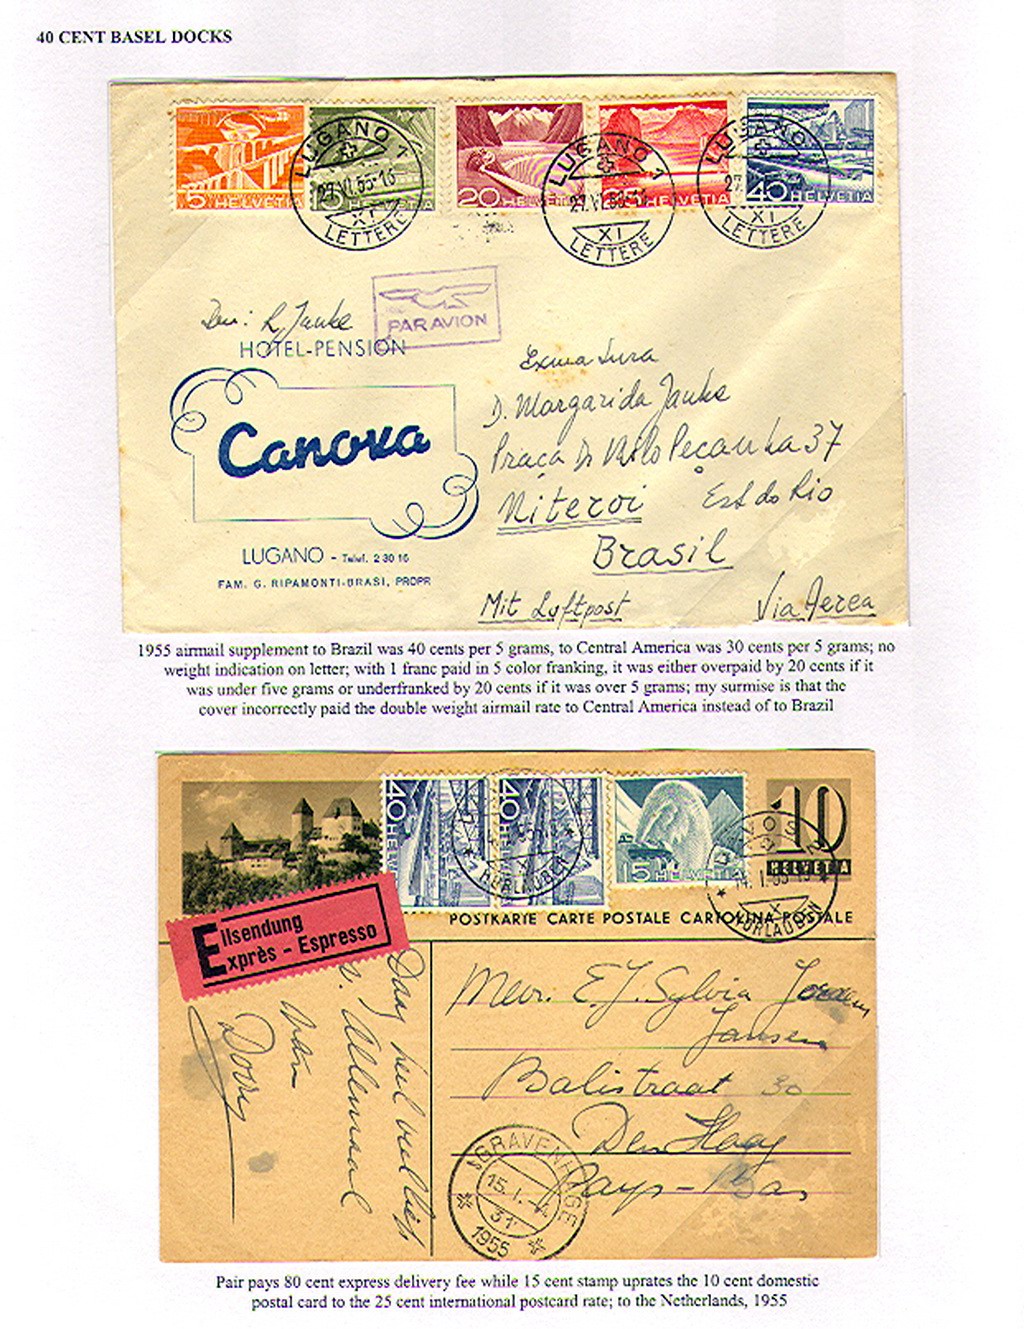 40 CENT BASEL DOCKS
5 HELVETIA
5 HELVETIA
20 HELVETIA
25 HELVETIA
40 HELVETIA
LUGANO 1
27.VI.55-16
XI
LETTERE
LUGANO 1
27.VI.55
XI
LETTERE
LUGANO 1
27.
XI
LETTERE
PAR AVION
R. Janke
HOTEL-PENSION
Canova
LUGANO - Telef. 2 30 16
FAM. G. RIPAMONTI-BRASI, PROPR
Exma Snra
D. Margarida Janke
Praça Dr Nilo Peçanha 37
Niteroi Est do Rio
Brasil
Mit Luftpost Via Aerea
1955 airmail supplement to Brazil was 40 cents per 5 grams, to Central America was 30 cents per 5 grams; no
weight indication on letter; with 1 franc paid in 5 color franking, it was either overpaid by 20 cents if it
was under five grams or underfranked by 20 cents if it was over 5 grams; my surmise is that the
cover incorrectly paid the double weight airmail rate to Central America instead of to Brazil
40 HELVETIA
40 HELVETIA
15 HELVETIA
10
HELVETIA
POSTKARTE CARTE POSTALE CARTOLINA POSTALE
Eilsendung
Exprès - Espresso
Mevr. E.J. Sylvia
Jansen
Balistraat 30
Den Haag
Pays-Bas
Dag
Dorry
'SGRAVENHAGE
15.I.
31
1955
Pair pays 80 cent express delivery fee while 15 cent stamp uprates the 10 cent domestic
postal card to the 25 cent international postcard rate; to the Netherlands, 1955